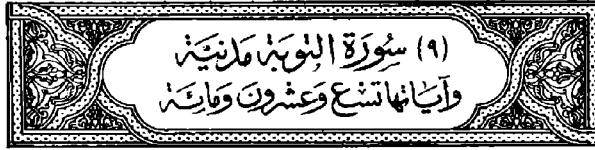 (٩) سُورَة التوبَة مَدنيَّة
وآيَاتها تسْع وَعشرُون وَمائِة